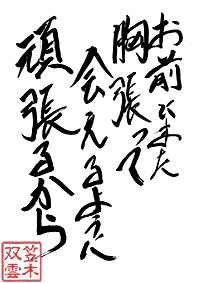 お前とまた
胸張って
会えるように
頑張るから
笠木
双雲